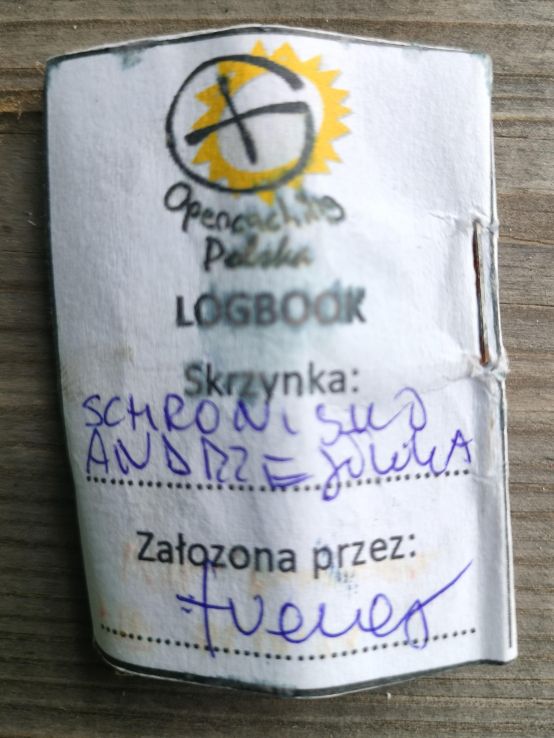 Opencaching
Polska
LOGBOOK
Skrzynka:
SCHRONISKO
ANDRZEJÓWKA
Założona przez: